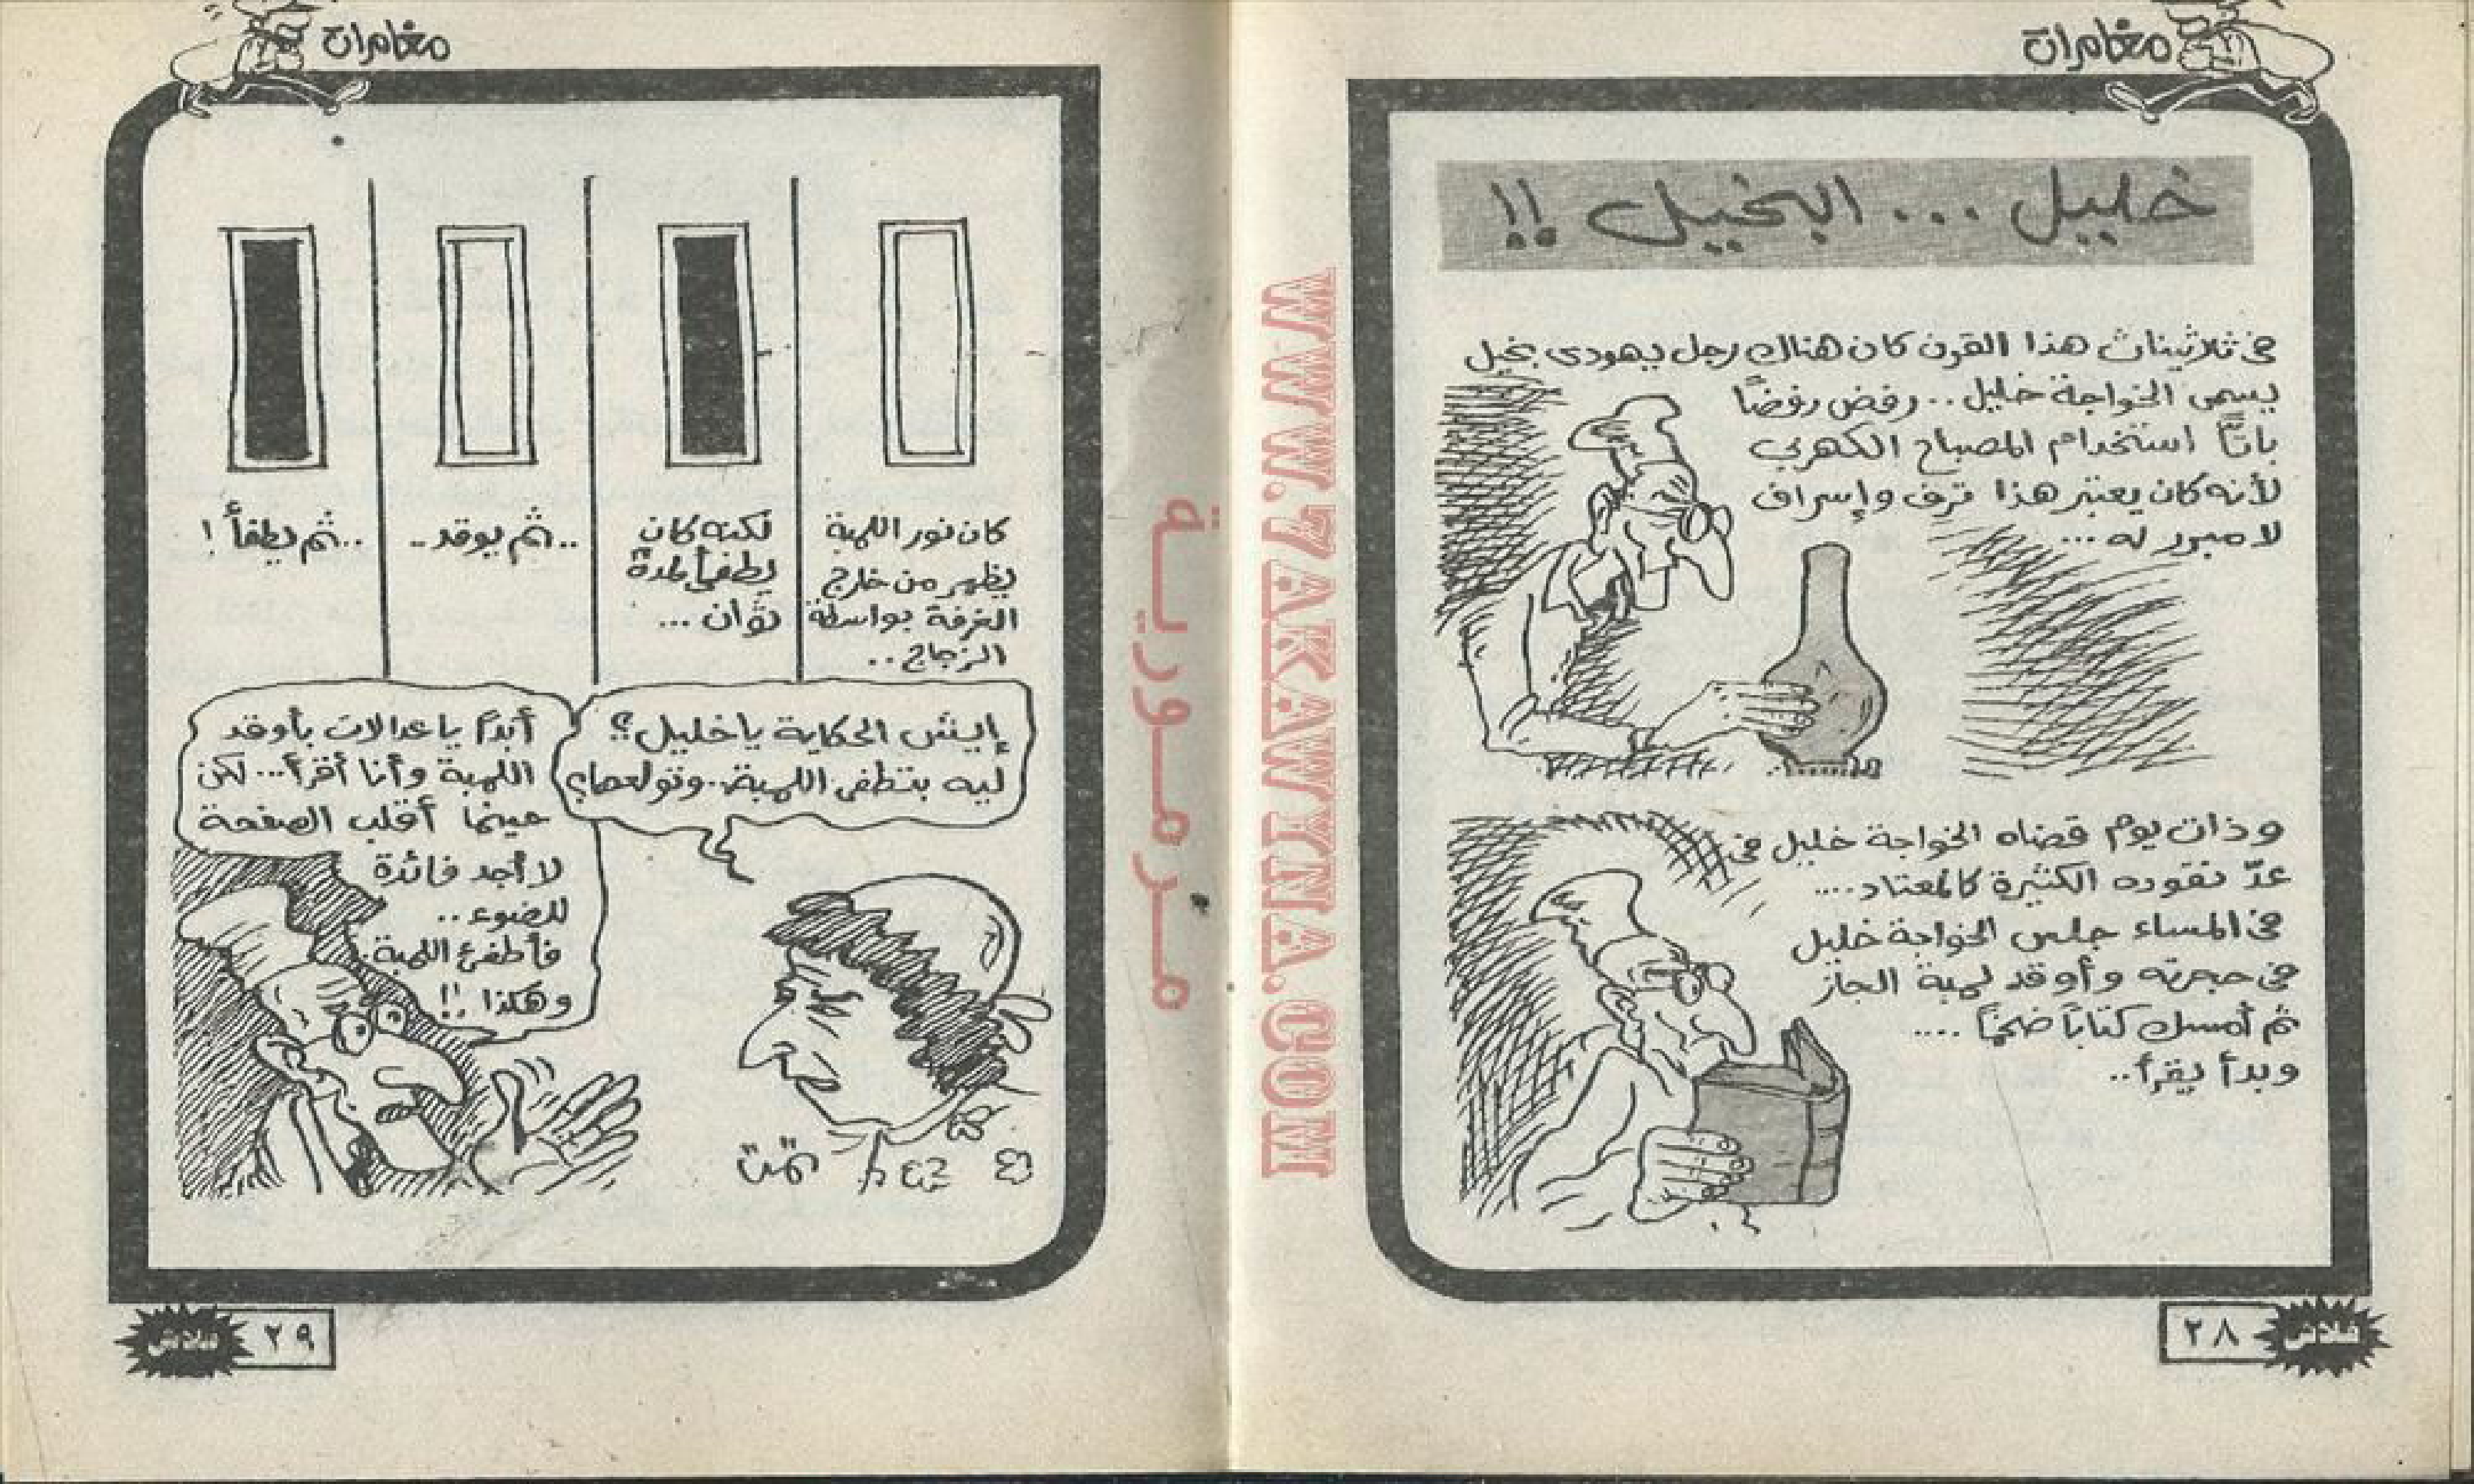 مغامرات
خليل ... البخيل !!
فى ثلاثينات هذا القرن كان هناك رجل يهودى بخيل
يسمى الخواجة خليل .. رفض رفضًا
باتًا استخدام المصباح الكهربى
لأنه كان يعتبر هذا ترف وإسراف
لا مبرر له ...
وذات يوم قضاه الخواجة خليل فى
عدّ نقوده الكثيرة كالمعتاد ....
فى المساء جلس الخواجة خليل
فى حجرته وأوقد لمبة الجاز
ثم أمسك كتابًا ضخمًا ....
وبدأ يقرأ ..
٢٨
فلاش
WWW.ZAKAWTNA.COM
مزمورية
مغامرات
كان نور اللمبة
يظهر من خارج
الغرفة بواسطة
الزجاج ..
لكنه كان
يطفئ لمدة
ثوان ...
.. ثم يوقد ..
.. ثم يطفأ !
إيش الحكاية يا خليل ؟
ليه بتطفى اللمبة .. وتولعها ؟
أبدًا يا عدالات بأوقد
اللمبة وأنا أقرأ ... لكن
حينما أقلب الصفحة
لا أجد فائدة
للضوء ..
فأطفئ اللمبة
وهكذا !!
تمت
٢٩
فلاش